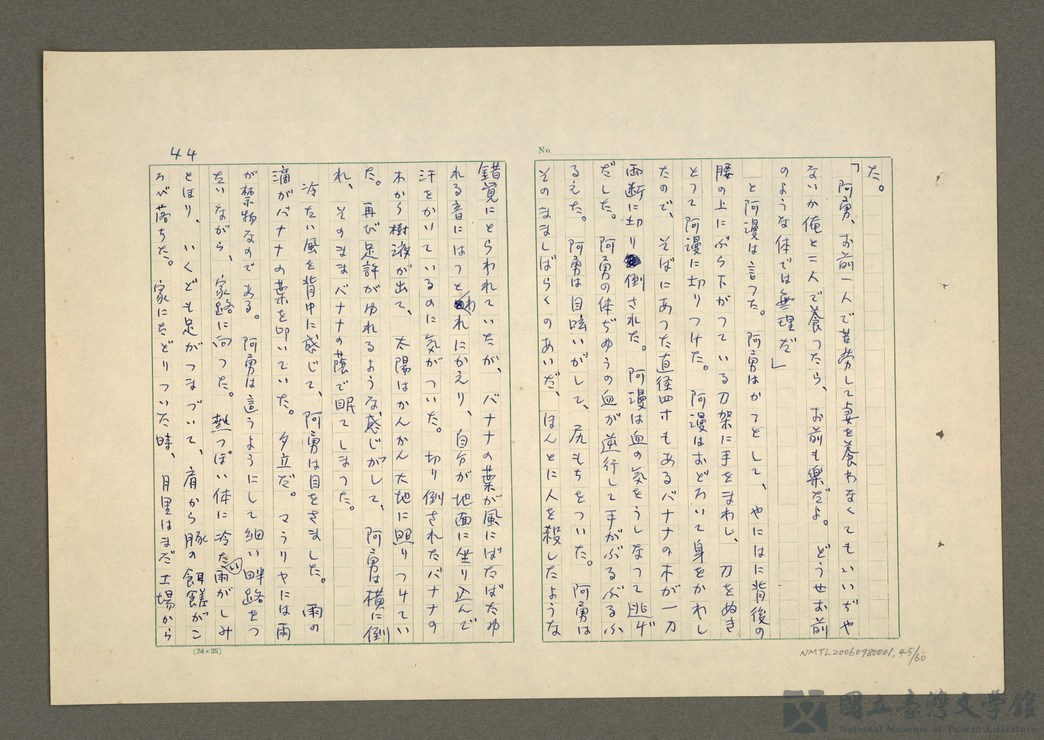 No.
た。
「阿勇、お前一人で苦労して妻を養わなくてもいいぢや
ないか俺と二人で養つたら、お前も楽だよ。どうせお前
のような体では無理だ」
と阿漫は言つた。阿勇はかつとして、やにはに背後の
腰の上にぶら下がつている刀架に手をまわし、刀をぬき
とつて阿漫に切りつけた。阿漫はおどろいて身をかわし
たので、そばにあつた直径四寸もあるバナナの木が一刀
両断に切り倒された。阿漫は血の気をうしなつて逃げ
だした。阿勇の体ぢゆうの血が逆行して手がぶるぶるふ
るえた。阿勇は目眩いがして、尻もちをついた。阿勇は
そのまましばらくのあいだ、ほんとに人を殺したような
44
錯覚にとらわれていたが、バナナの葉が風にばたばたゆ
れる音にはつとわれにかえり、自分が地面に坐り込んで
汗をかいているのに気がついた。切り倒されたバナナの
木から樹液が出て、太陽はかんかん大地に照りつけてい
た。再び足許がゆれるような感じがして、阿勇は横に倒
れ、そのままバナナの蔭で眠てしまつた。
冷たい風を背中に感じて、阿勇は目をさました。雨の
滴がバナナの葉を叩いていた。夕立だ。マラリヤには雨
が禁物なのである。阿勇は這うようにして細い畔路をつ
たいながら、家路に向つた。熱つぽい体に冷たい雨がしみ
とほり、いくども足がつまづいて、肩から豚の餌𩞄がこ
ろべ落ちた。家にたどりついた時、月里はまだ工場から
(24×25)
NMTL20060980001.45/60
國立臺灣文學館
National Museum of Taiwan Literature